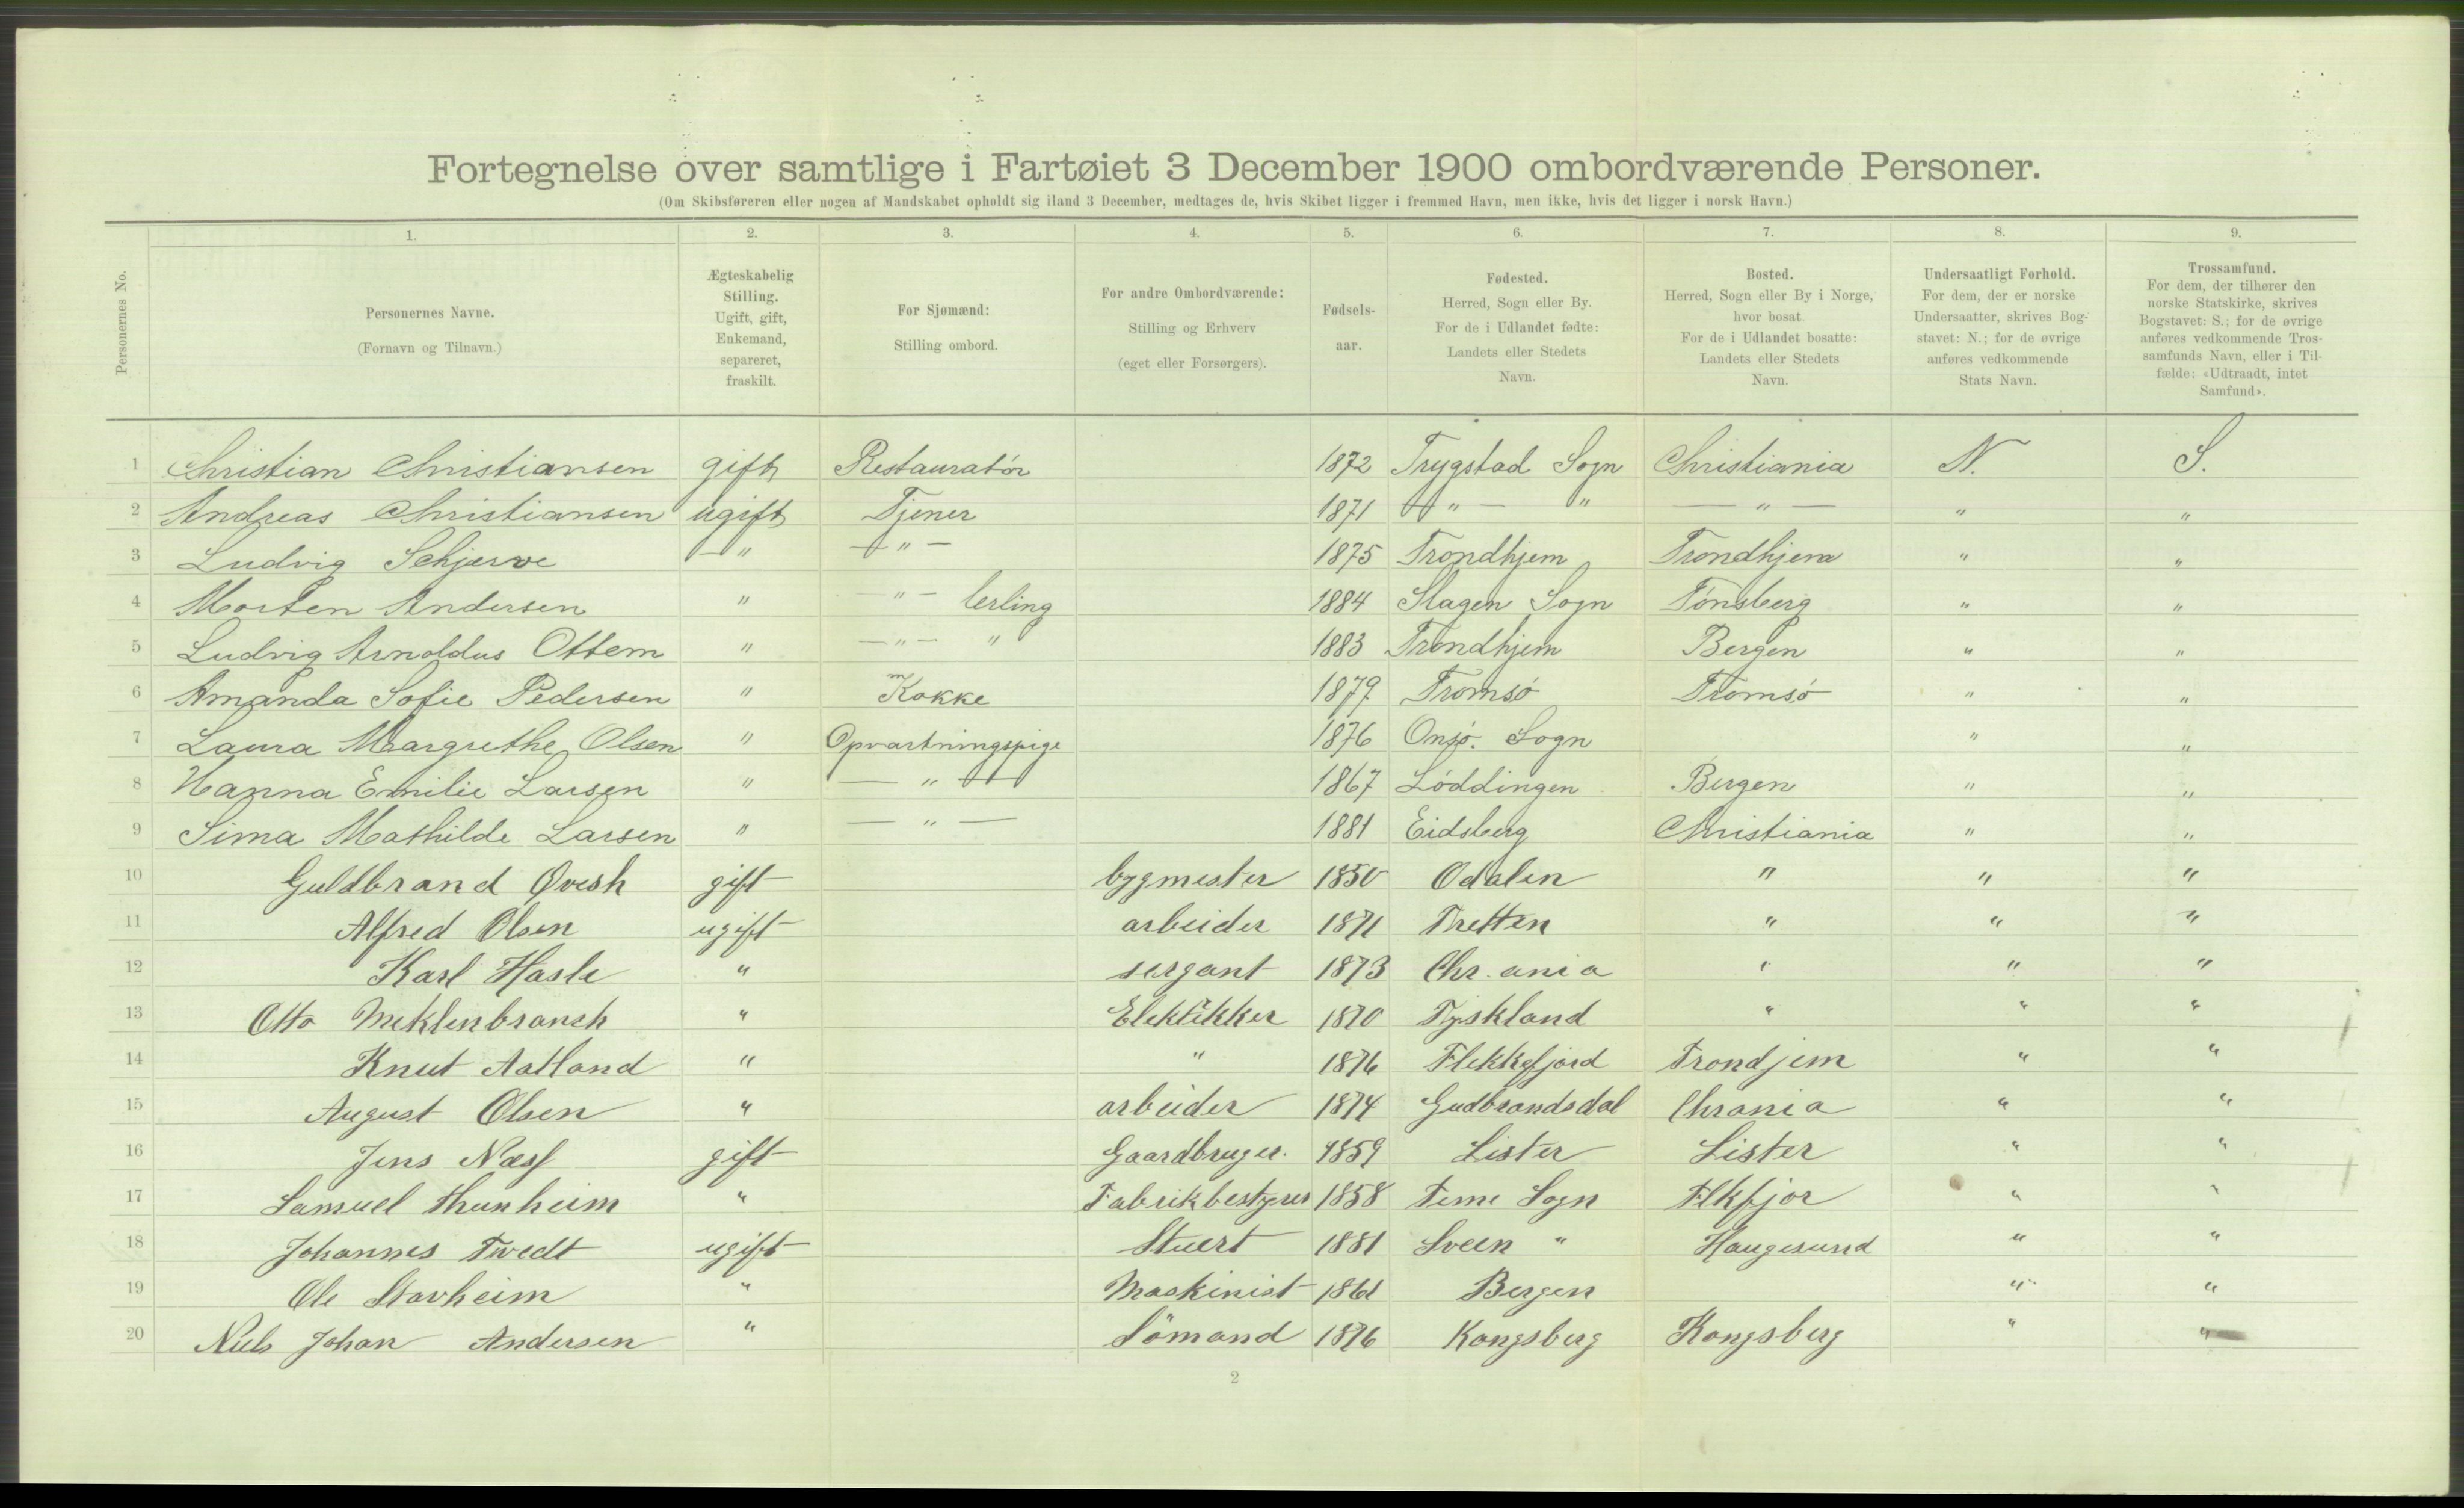 Fortegnelse over samtlige i Fartøiet 3 December 1900 ombordværende Personer.
(Om Skibsføreren eller nogen af Mandskabet opholdt sig iland 3 December, medtages de, hvis Skibet ligger i fremmed Havn, men ikke, hvis det ligger i norsk Havn.)
1. 2. 3. 4. 5. 6. 7. 8. 9.
Personernes No.
Personernes Navne.
(Fornavn og Tilnavn.)
Ægteskabelig
Stilling.
Ugift, gift,
Enkemand,
separeret,
fraskilt.
For Sjømænd:
Stilling ombord.
For andre Ombordværende:
Stilling og Erhverv
(eget eller Forsørgers).
Fødsels-
aar.
Fødested.
Herred, Sogn eller By.
For de i Udlandet fødte:
Landets eller Stedets
Navn.
Bosted.
Herred, Sogn eller By i Norge,
hvor bosat.
For de i Udlandet bosatte:
Landets eller Stedets
Navn.
Undersaatligt Forhold.
For dem, der er norske
Undersaatter, skrives Bog-
stavet: N.; for de øvrige
anføres vedkommende
Stats Navn.
Trossamfund.
For dem, der tilhører den
norske Statskirke, skrives
Bogstavet: S.; for de øvrige
anføres vedkommende Tros-
samfunds Navn, eller i Til-
fælde: «Udtraadt, intet
Samfund».
1 Christian Christiansen gift Restauratør 1872 Trygstad Sogn Christiania N. S.
2 Andreas Christiansen ugift Tjener 1871 — " — " — " — " "
3 Ludvig Schjerve — " — " — 1875 Trondhjem Trondhjem " "
4 Morten Andersen " — " — lerling 1884 Slagen Sogn Tønsberg " "
5 Ludvig Arnoldus Ottem " — " — " 1883 Trondhjem Bergen " "
6 Amanda Sofie Pedersen " Kokke 1879 Tromsø Tromsø " "
7 Laura Margrethe Olsen " Opvartningspige 1876 Onsø. Sogn " "
8 Hanna Emilie Larsen " — " — 1867 Løddingen Bergen " "
9 Sima Mathilde Larsen " — " — 1881 Eidsberg Christiania " "
10 Guldbrand gift bygmester 1850 Odalen " " "
11 Alfred Olsen ugift arbeider 1871 Tretten " " "
12 Karl Hasle " sergant 1873 Chr.ania " " "
13 Otto " 1870 Tyskland " " "
14 Knut " " 1876 Flekkefjord Trondjem " "
15 August Olsen " arbeider 1874 Gudbrandsdal Chrania " "
16 Jens Næss gift Gaardbruger. 1859 Lister Lister " "
17 Samuel Thunheim " Fabrikbestyrer 1858 Time Sogn Flkfjor " "
18 Johannes Twedt ugift Stuert 1881 Sveen " Haugesund " "
19 Ole Storheim " Maskinist Bergen " "
20 Niels Johan Andersen " Sömand 1876 Kongsberg Kongsberg " "
2